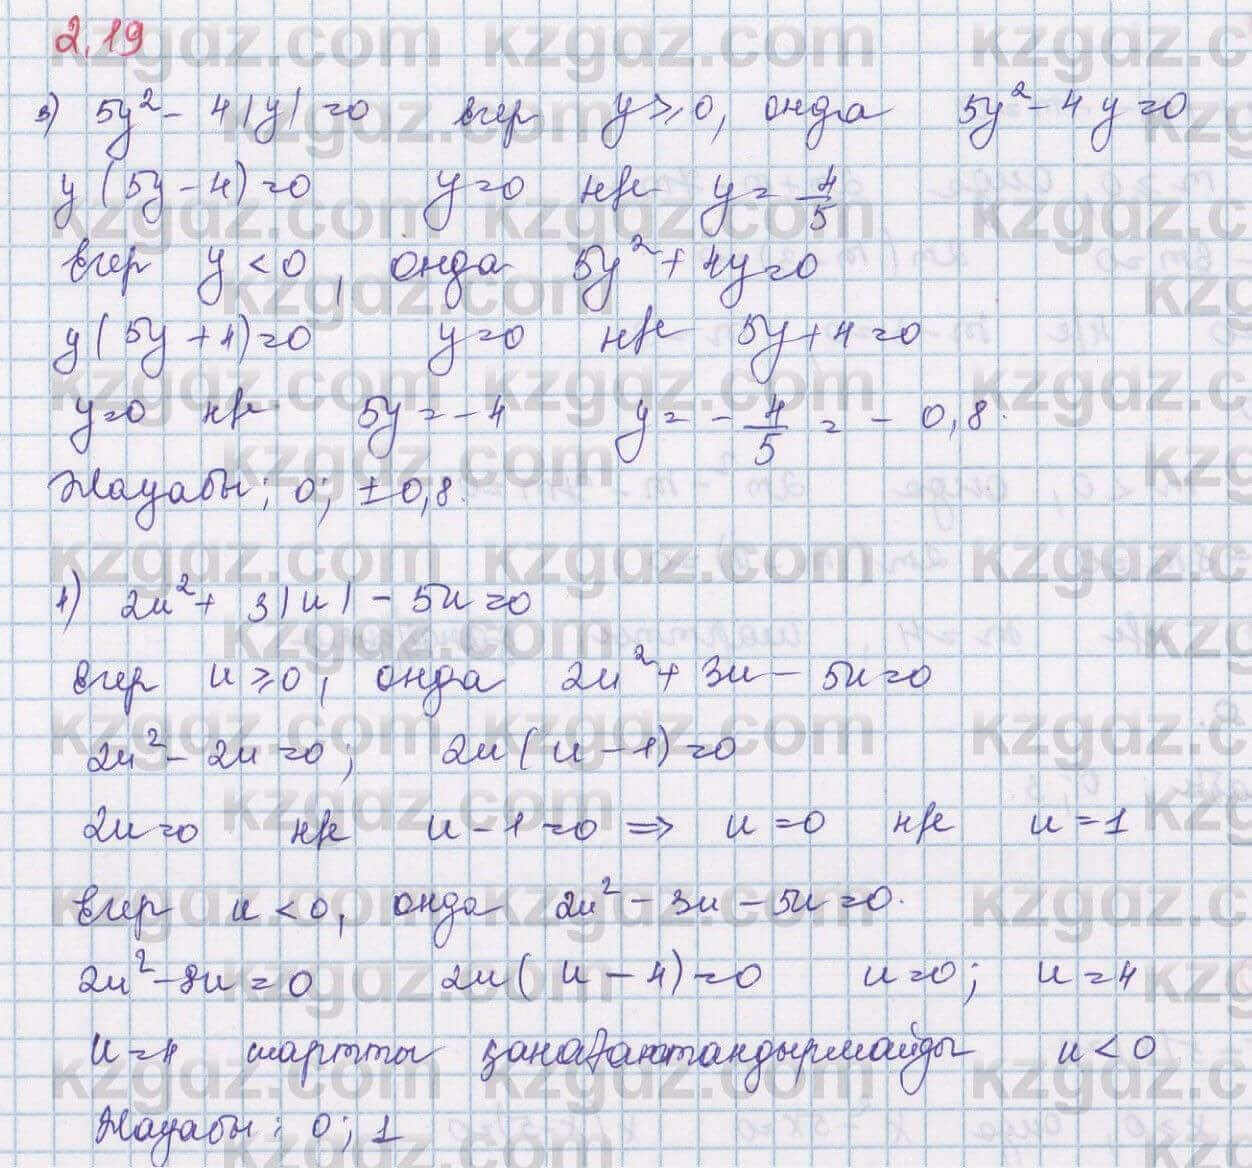 2.19
3) 5y² - 4|y| = 0 егер y ≥ 0, онда 5y² - 4y = 0
y(5y - 4) = 0 y = 0 н/е y = 4/5
егер y < 0, онда 5y² + 4y = 0
y(5y + 4) = 0 y = 0 н/е 5y + 4 = 0
y = 0 н/е 5y = -4 y = -4/5 = -0,8.
Жауабы: 0; ±0,8.
1) 2u² + 3|u| - 5u = 0
егер u ≥ 0, онда 2u² + 3u - 5u = 0
2u² - 2u = 0; 2u(u - 1) = 0
2u = 0 н/е u - 1 = 0 ⇒ u = 0 н/е u = 1
егер u < 0, онда 2u² - 3u - 5u = 0.
2u² - 8u = 0 2u(u - 4) = 0 u = 0; u = 4
u = 4 шартты қанағаттандырмайды u < 0
Жауабы: 0; 1